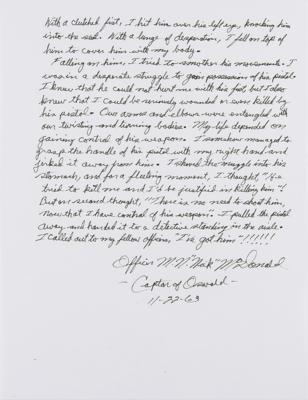 With a clutched fist, I hit him over his left eye, knocking him
into the seat. With a lunge of desperation, I fell on top of
him to cover him with my body.
Falling on him, I tried to smother his movements. I
was in a desperate struggle to gain possession of his pistol.
I knew that he could not hurt me with his fist, but I also
knew that I could be seriously wounded or even killed by
his pistol. Our arms and elbows were entangled with
our twisting and turning bodies. My life depended on
gaining control of his weapon. I somehow managed to
grasp the handle of his pistol with my right hand and
jerked it away from him. I shoved the muzzle into his
stomach, and for a fleeting moment, I thought, "He
tried to kill me and I'd be justified in killing him"!
But on second thought, "There is no need to shoot him,
now that I have control of his weapon". I pulled the pistol
away and handed it to a detective standing in the aisle.
I called out to my fellow officers, "I've got him"!!!!!!
Officer M.N. "Nick" McDonald
- Captor of Oswald -
11-22-63